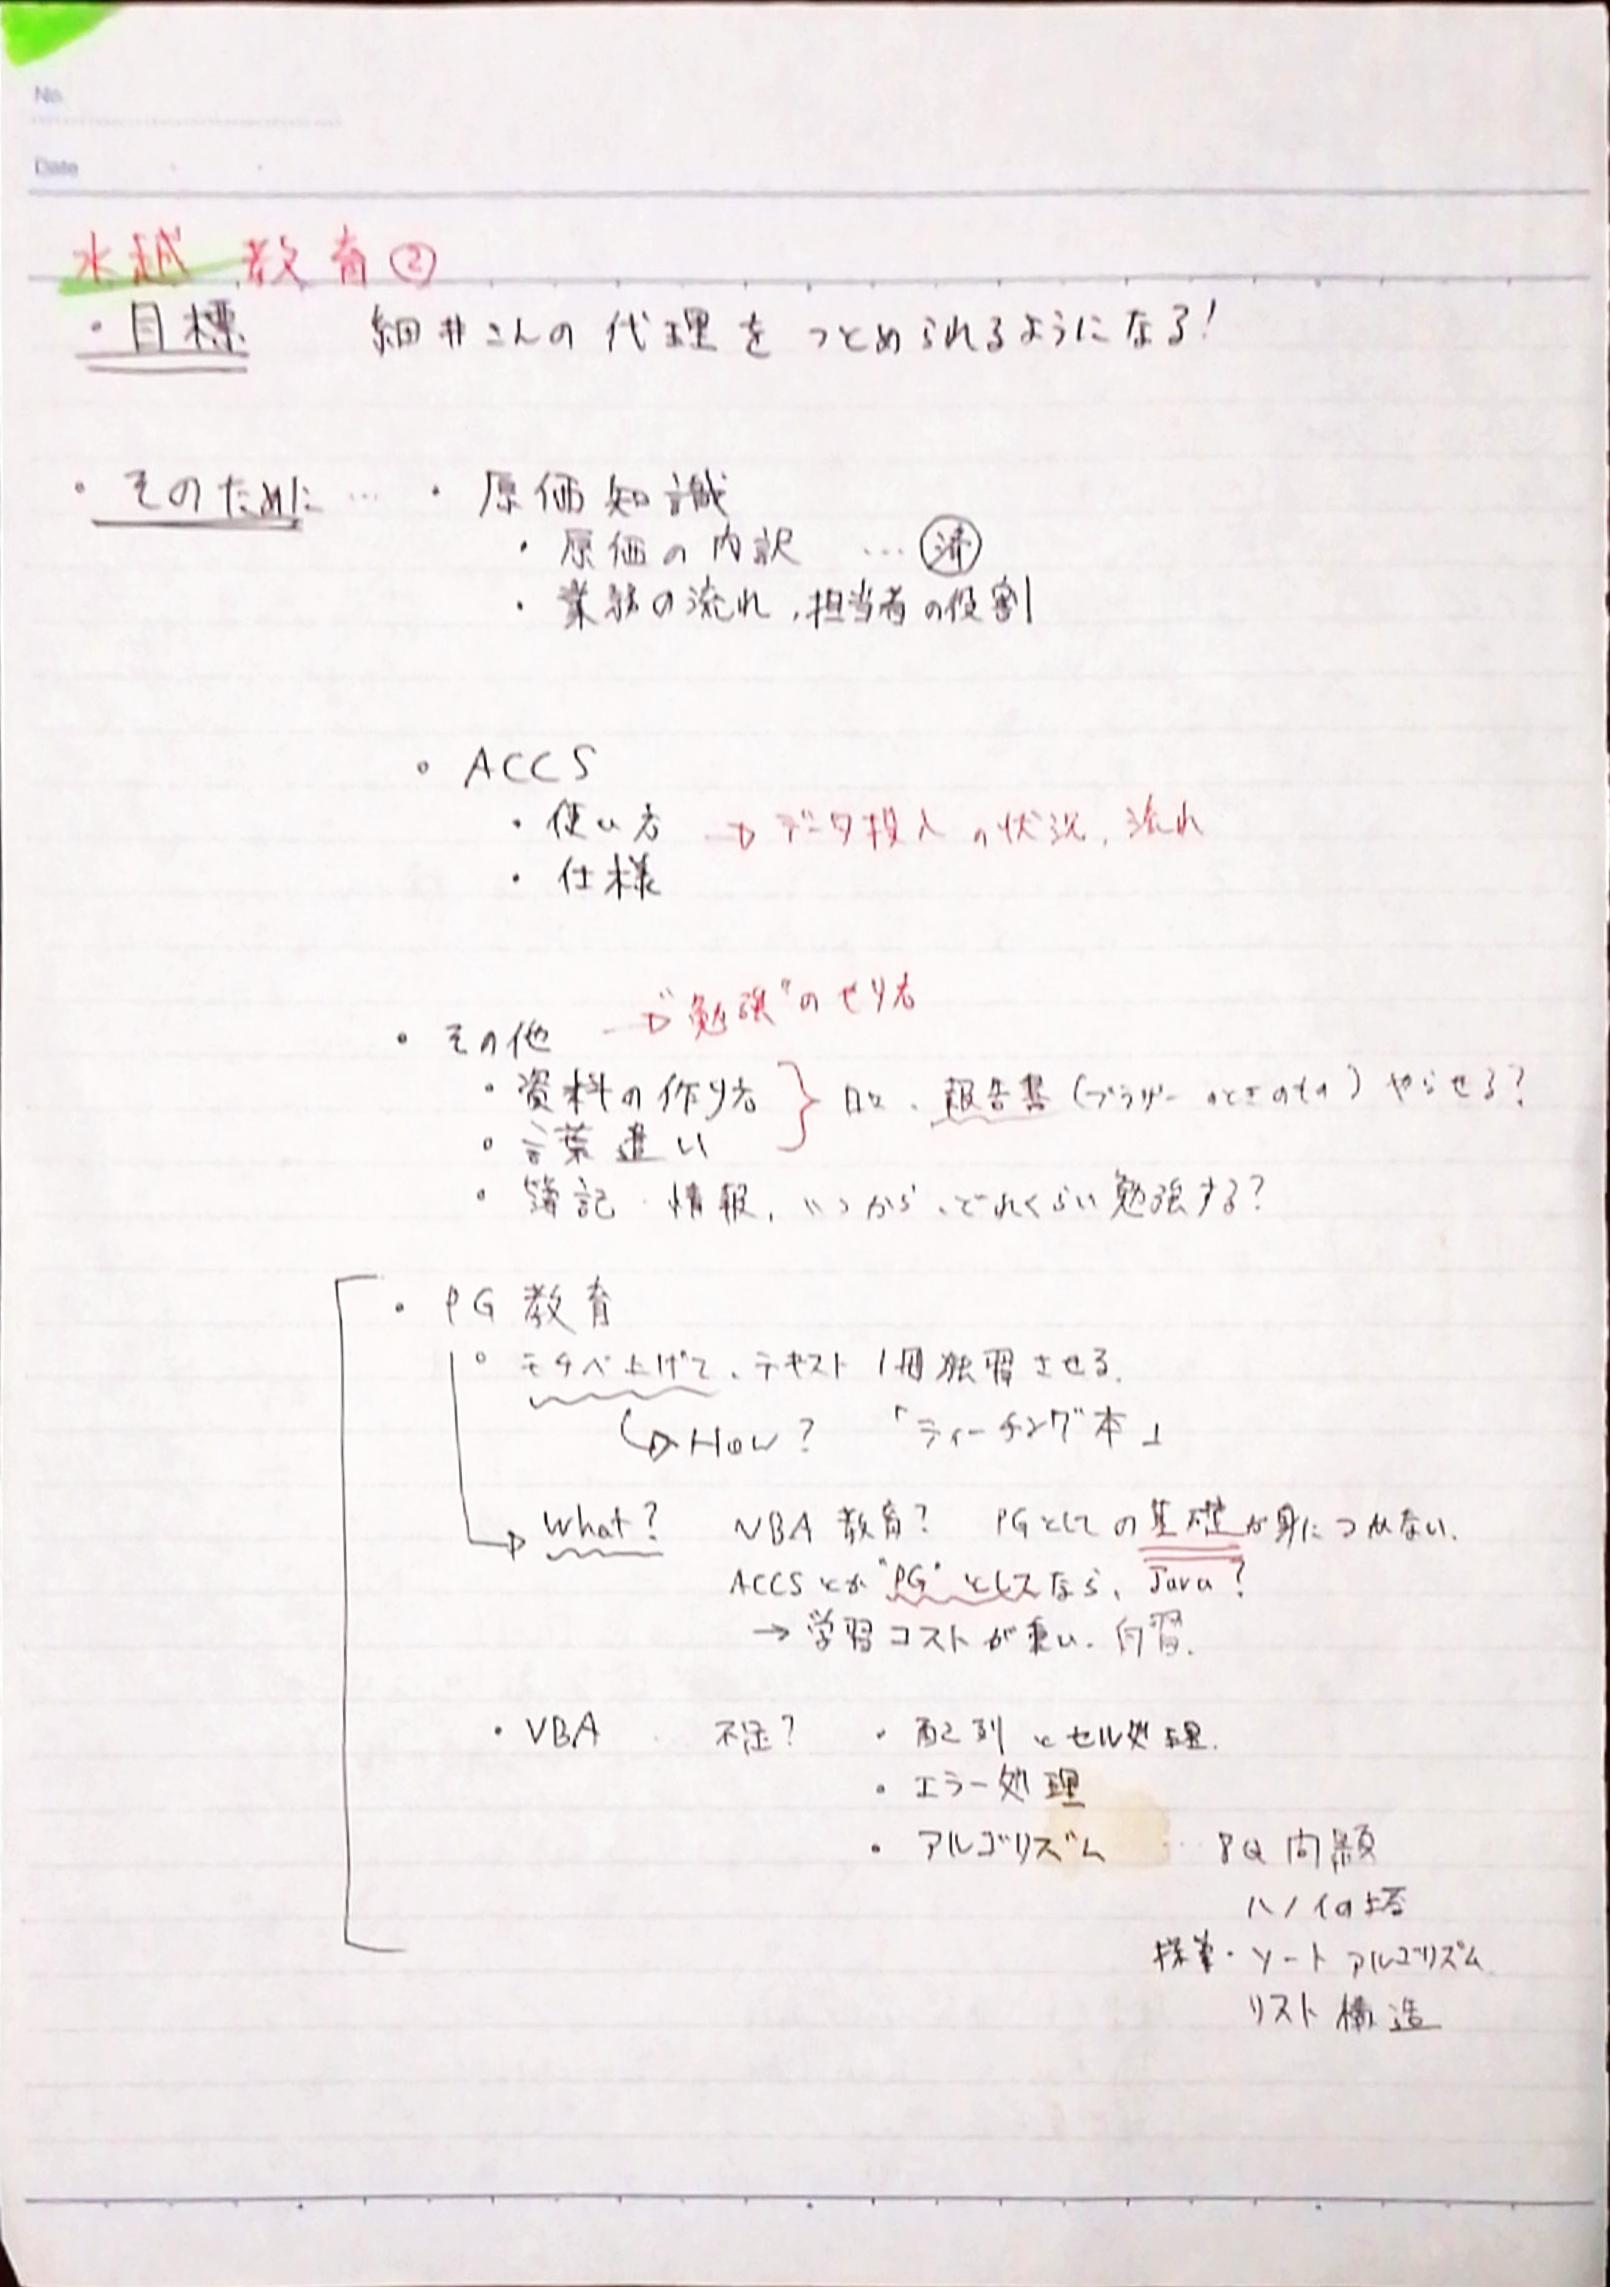 No.
Date
水越 教育②
・目標 細井さんの代理をつとめられるようになる!
・そのために … ・原価知識
・原価の内訳 … 済
・業務の流れ、担当者の役割
・ACCS
・使い方 → データ投入の状況、流れ
・仕様
・その他 → "勉強"のやり方
・資料の作り方
・言葉遣い
日々、報告書(ブラザーのときのもの)やらせる?
・簿記・情報、いつから、どれくらい勉強する?
・PG教育
・モチベ上げて、テキスト1冊独習させる。
→ How? 「ティーチング本」
→ What? VBA教育? PGとしての基礎が身につかない。
ACCSとか"PG"としてなら、Java?
→ 学習コストが重い。自習。
・VBA 不足? ・配列とセル処理。
・エラー処理
・アルゴリズム … 8Q問題
ハノイの塔
探索・ソートアルゴリズム
リスト構造